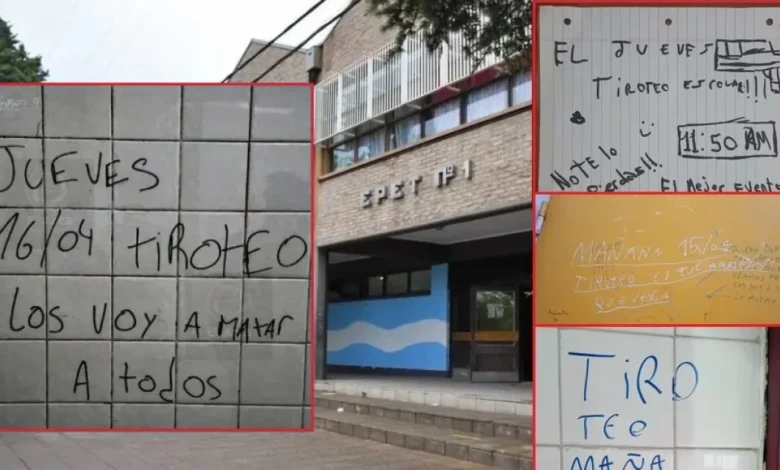 JUEVES
16/04 TIROTEO
LOS VOY A MATAR
A todos
EPET Nº 1
EL JUEVES
TIROTEO ESCOLAR!!!
11:50 AM
NO TE lo
pierdas!!
El Mejor Evento
MAÑANA 15/04
TIROTEO EL QUE
QUE VENGA
TIRO
TEO
MAÑA